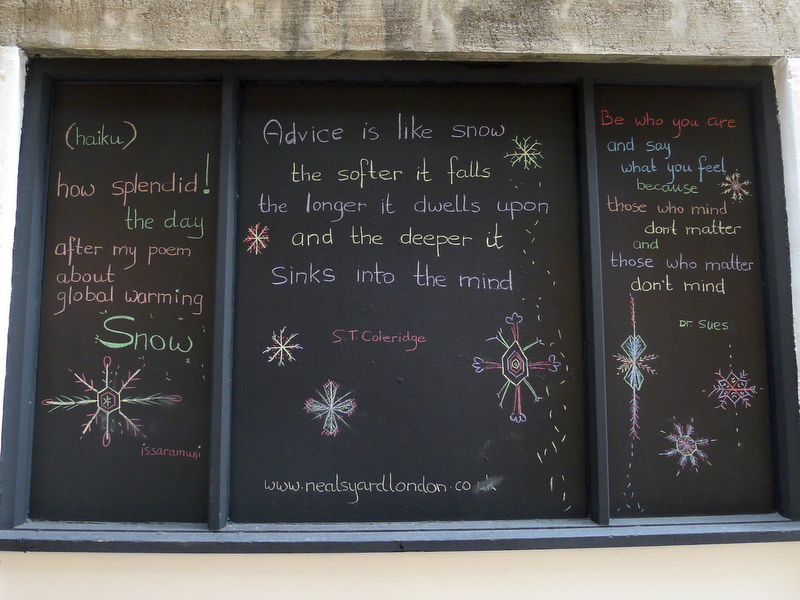 (haiku)
how splendid!
the day
after my poem
about
global warming
Snow
issaramuni
Advice is like snow
the softer it falls
the longer it dwells upon
and the deeper it
Sinks into the mind
S.T. Coleridge
www.nealsyardlondon.co.uk
Be who you are
and say
what you feel
because
those who mind
don't matter
and
those who matter
don't mind
Dr Sues